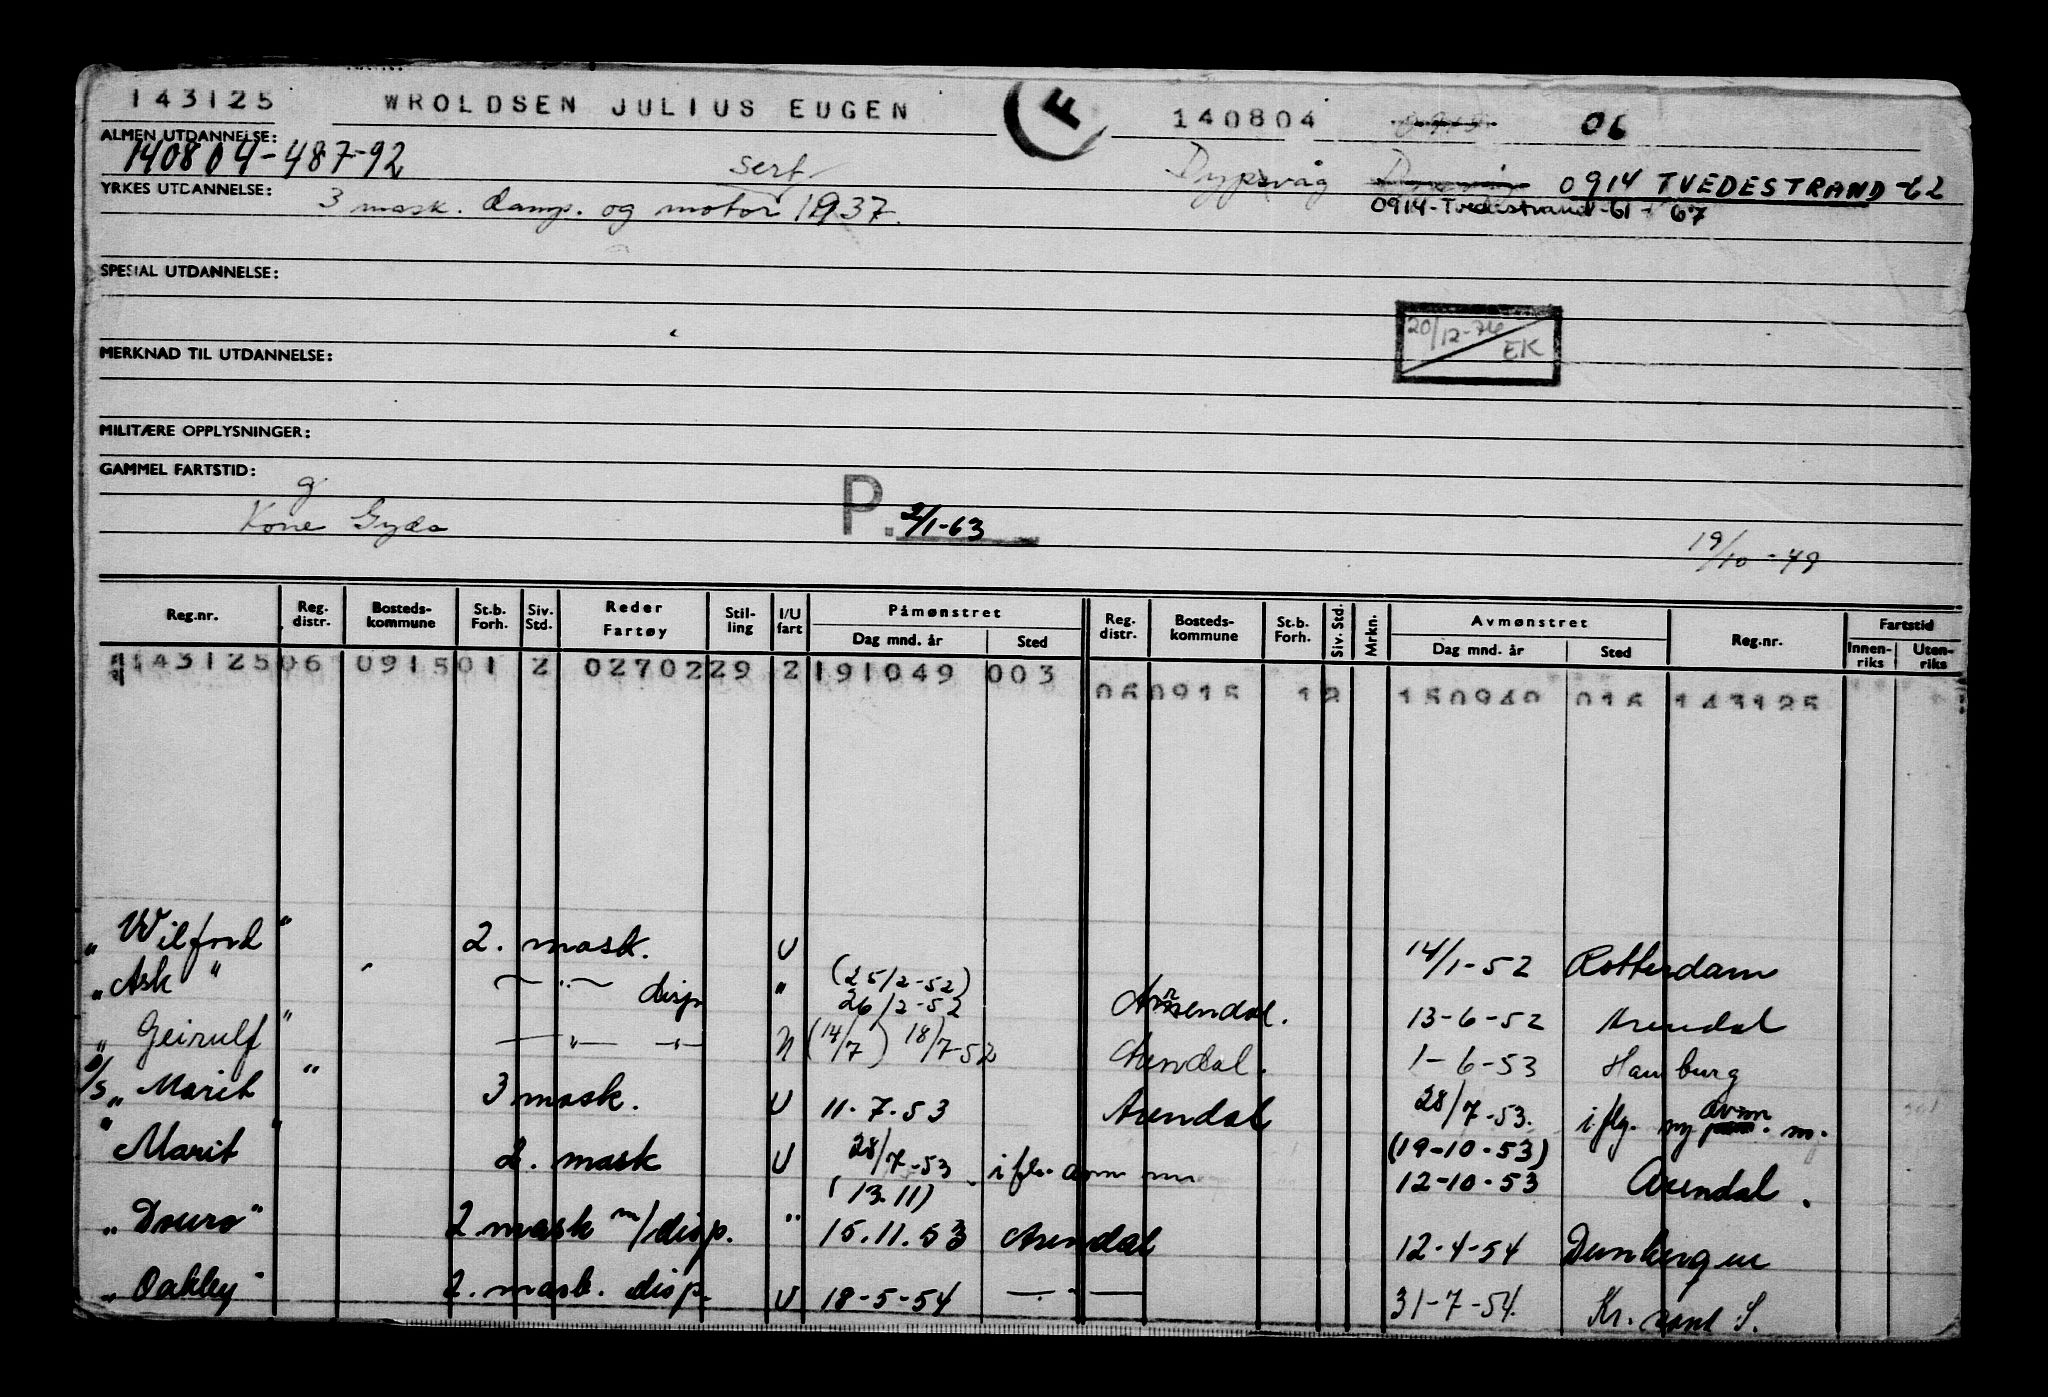 143125 WROLDSEN JULIUS EUGEN F 140804 06
ALMEN UTDANNELSE:
140804-487-92 sert. Dypvåg 0914 TVEDESTRAND-62
YRKES UTDANNELSE: 3 mask. damp. og motor 1937. 0914-Tvedestrand-61- 67
SPESIAL UTDANNELSE:
20/12-76 EK
MERKNAD TIL UTDANNELSE:
MILITÆRE OPPLYSNINGER:
GAMMEL FARTSTID:
g
Kone Gyda P. 2/1-63 19/10-49
Reg.nr. Reg. distr. Bosteds-kommune St.b. Forh. Siv. Std. Reder Fartøy Stil-ling I/U fart Påmønstret Dag mnd. år Sted Reg. distr. Bosteds-kommune St.b. Forh. Siv. Std. Mrkn. Avmønstret Dag mnd. år Sted Reg.nr. Fartstid Innen-riks Uten-riks
143125 06 0915 01 2 02702 29 2 191049 003
06 0915 12 150940 016 143125
"Wilford" 2. mask. U 14/1-52 Rotterdam
"Ask" —"— disp " (25/2-52)
26/2-52 Arendal. 13-6-52 Arendal
"Geirulf" —"— —"— N (14/7) 18/7-52 Arendal. 1-6-53 Hamburg
D/S "Marit" 3 mask. U 11.7.53 Arendal 28/7-53. i flg. ny avm. m.
"Marit" 2. mask U 28/7-53 i flg. (19-10-53)
12-10-53 Arendal.
(13.11)
"Douro" 2 mask m/disp. " 15.11.53 Arendal 12-4-54
"Oakley" 2. mask. disp. U 18-5-54 —"— 31-7-54. Kr. sand S.